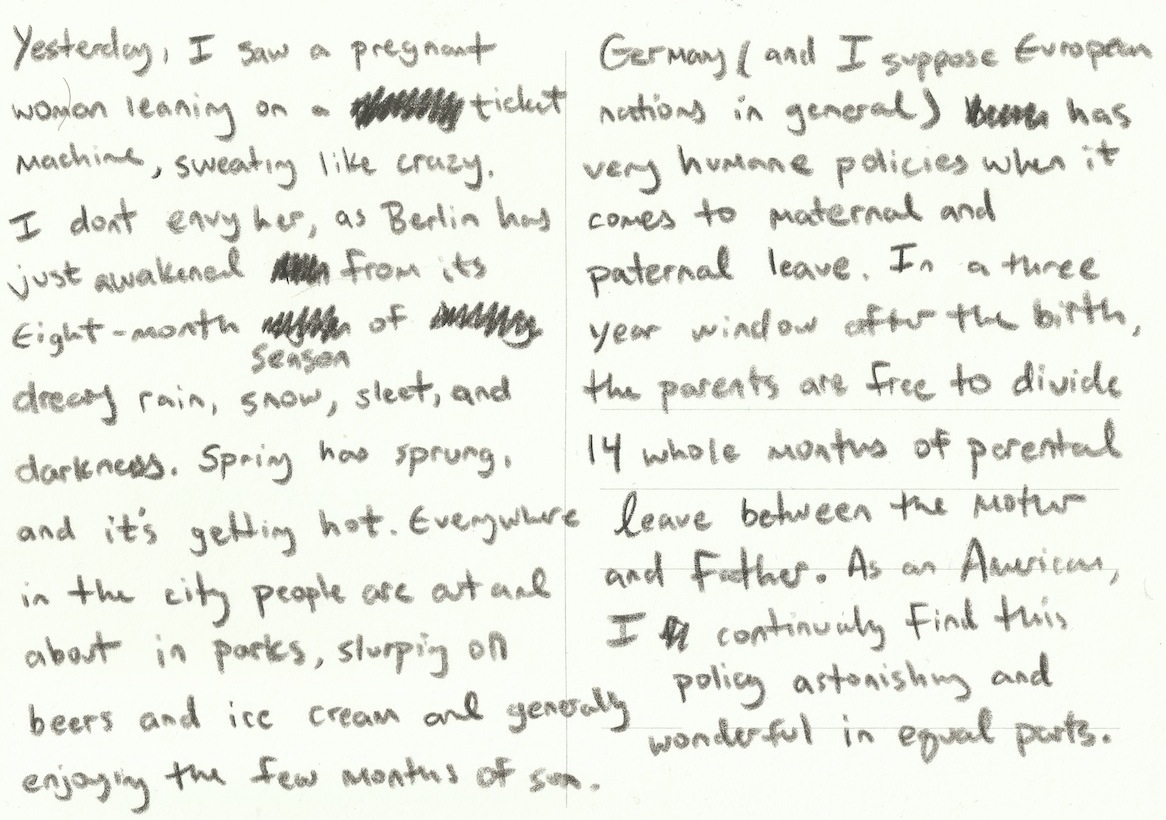 Yesterday, I saw a pregnant
woman leaning on a ticket
machine, sweating like crazy.
I dont envy her, as Berlin has
just awakened from its
Eight-month of
season
dreary rain, snow, sleet, and
darkness. Spring has sprung,
and it's getting hot. Everywhere
in the city people are out and
about in parks, slurping on
beers and ice cream and generally
enjoying the few months of sun.
Germany (and I suppose European
nations in general) has
very humane policies when it
comes to maternal and
paternal leave. In a three
year window after the birth,
the parents are free to divide
14 whole months of parental
leave between the mother
and Father. As an American,
I continualy find this
policy astonishing and
wonderful in equal parts.